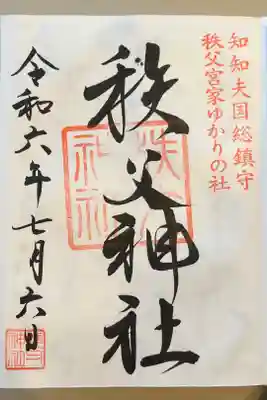 知知夫国総鎮守
秩父宮家ゆかりの社
秩父神社
令和六年七月六日